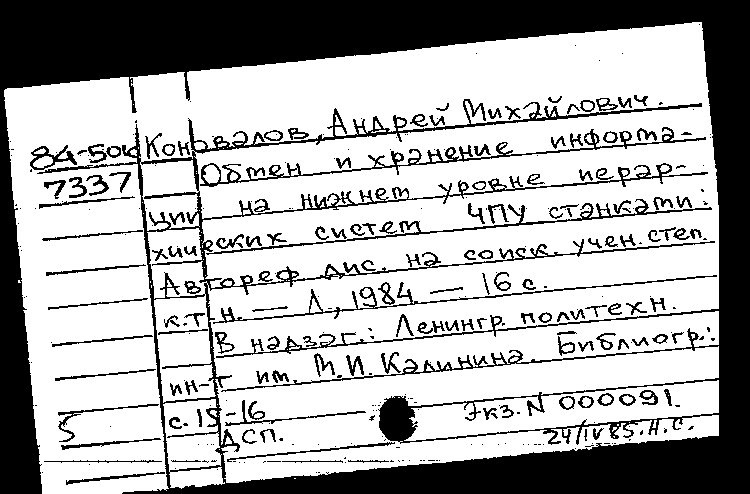 Коновалов, Андрей Михайлович.
84-50к
7337
Обмен и хранение информа-
ции на нижнем уровне иерар-
хических систем ЧПУ станками:
Автореф дис. на соиск. учен. степ.
к.т.н. — Л., 1984. — 16 с.
В надзаг.: Ленингр политехн.
ин-т им. М.И. Калинина. Библиогр.:
с. 15-16.
5
ДСП.
Экз. N 000091.
24/IV 85. Н.С.